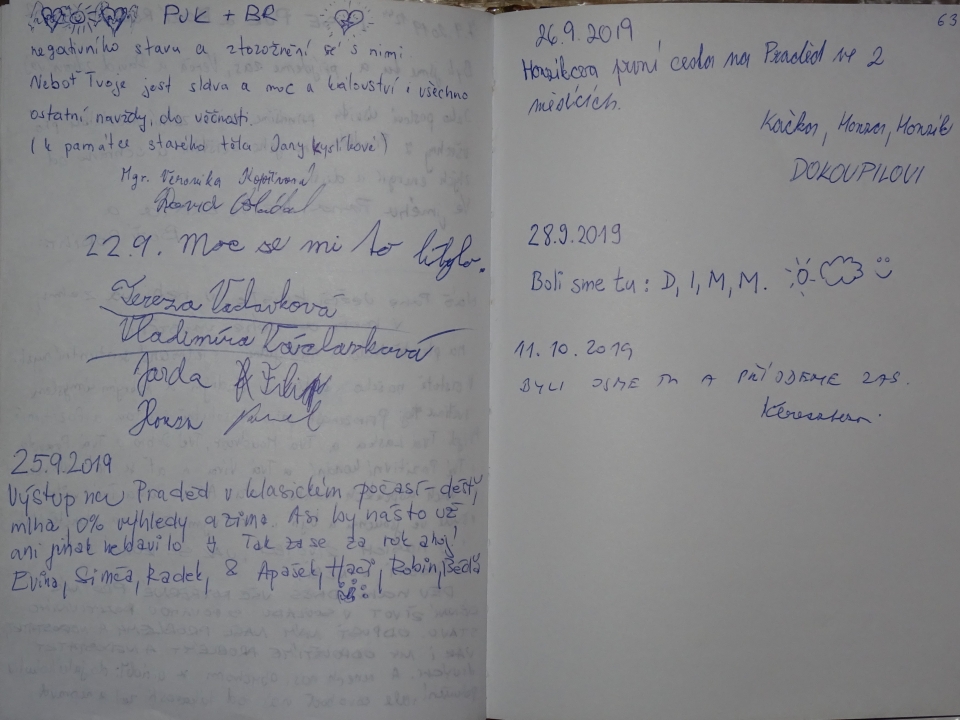 PUK + BR
negativního stavu a ztotožnění se s nimi.
Neboť Tvoje jest sláva a moc a království i všechno
ostatní, navždy, do věčnosti.
(k památce starého těla Jany Kyslíkové)
Mgr. Veronika
David
22.9. Moc se mi to líbylo.
Tereza Václavková
Vladimíra Václavková
Jarda Filip
Honza Pavel
25.9.2019
Výstup na Praděd v klasickém počasí - déšť,
mlha, 0% výhledy a zima. Asi by nás to už
ani jinak nebavilo Tak zase za rok ahoj!
Evina, Simča, Radek, & Apašek, Hačí, Robin, Béďa
63
26.9.2019
Honzíkova první cesta na Praděd ve 2
měsících.
Kačka, Honza, Honzík
DOKOUPILOVI
28.9.2019
Boli sme tu: D, I, M, M.
11.10.2019
BYLI JSME TU A PŘIJDEME ZAS.